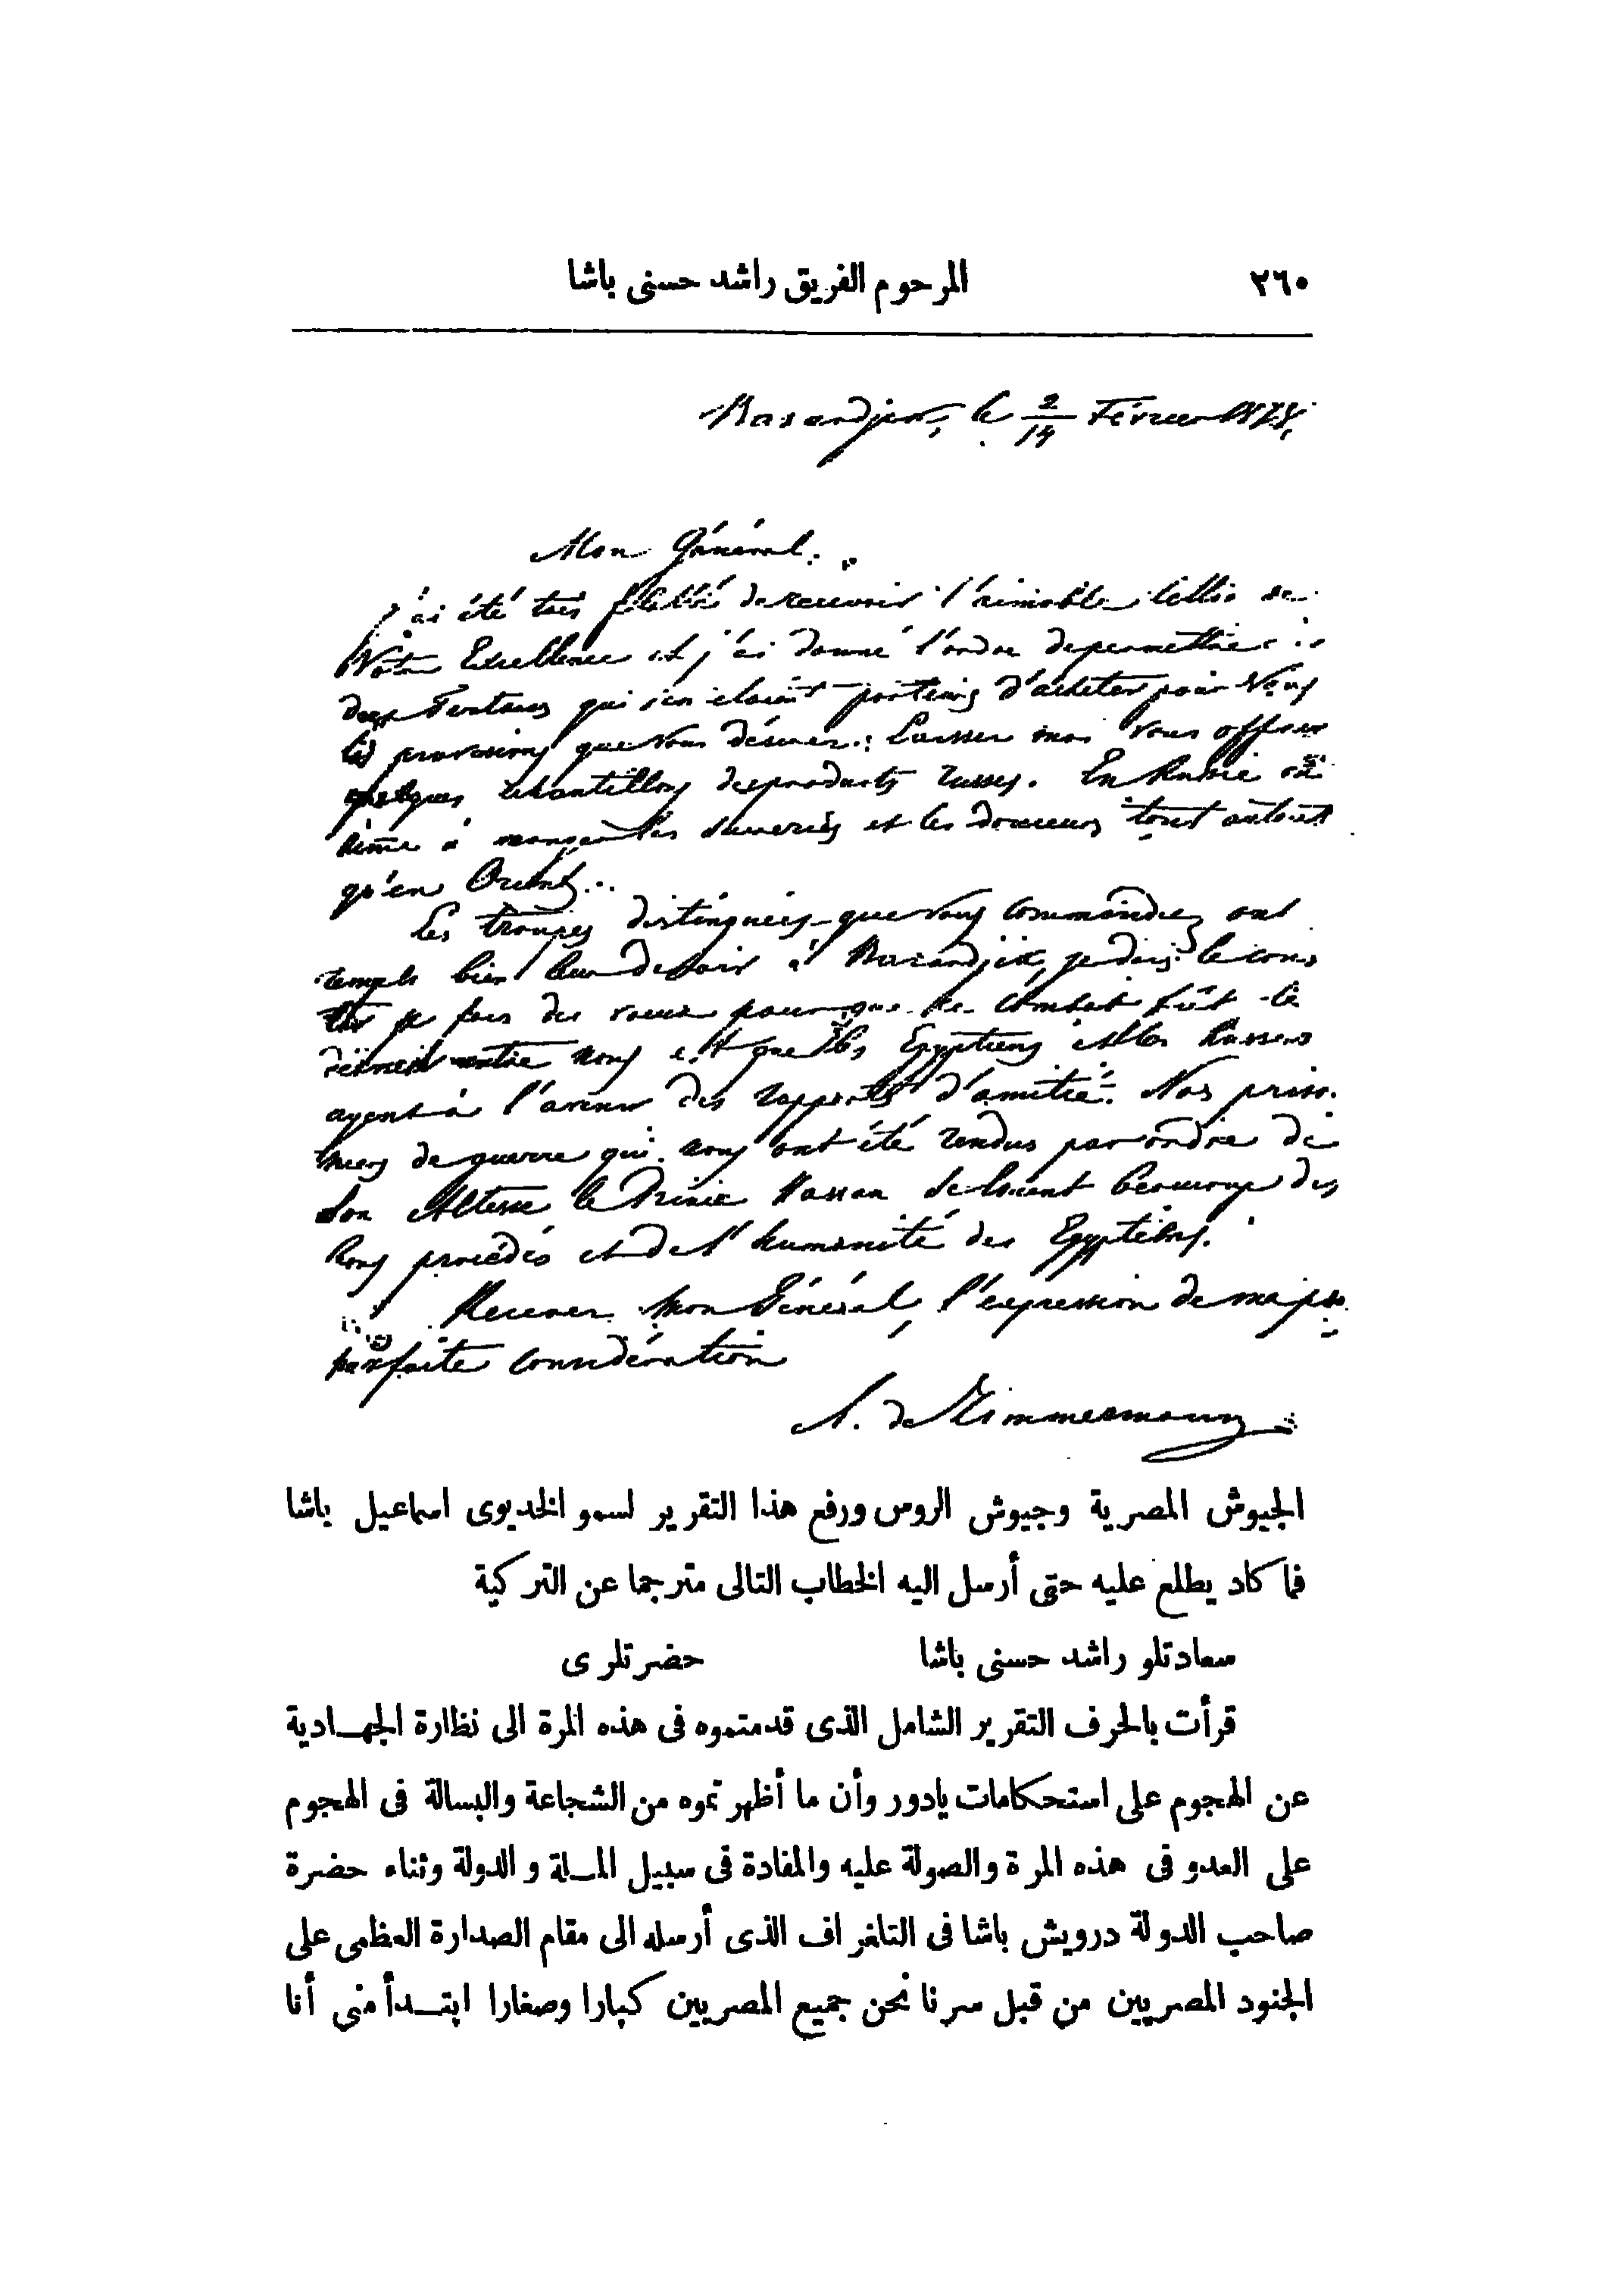 ٢٦٠ المرحوم الفريق راشد حسنى باشا
le 2/14 Février 1878
Mon Général.
j'ai été très de recevoir l'aimable lettre de
Votre Excellence et j'ai donné l'ordre de permettre
qui porteurs d'acheter pour Vous
les provisions que vous désirez. Laissez moi Vous offrir
quelques échantillons de produits russes. En Russie on
aime à manger les sucreries et les douceurs tout autant
qu'en Orient...
Les troupes distinguées que Vous commandez ont
rempli bien leur devoir à Bazardjik, je dois le
je fais des voeux pour que ce combat fût le
dernier entre nous et que les Egyptiens et les Russes
ayent à l'avenir des rapports d'amitié. Nos prison-
niers de guerre qui nous ont été rendus par ordre de
Son Altesse le Prince Hassan se louent beaucoup des
bons procédés et de l'humanité des Egyptiens.
Recevez Mon Général, l'expression de ma
parfaite considération
de Zimmermann
الجيوش المصرية وجيوش الروس ورفع هذا التقرير لسمو الخديوى اسماعيل باشا
فما كاد يطلع عليه حتى أرسل اليه الخطاب التالى مترجما عن التركية
سعادتلو راشد حسنى باشا حضرتلرى
قرأت بالحرف التقرير الشامل الذى قدمتموه فى هذه المرة الى نظارة الجهادية
عن الهجوم على استحكامات يادور وأن ما أظهرتموه من الشجاعة والبسالة فى الهجوم
على العدو فى هذه المرة والصولة عليه والمفادة فى سبيل الملة والدولة وثناء حضرة
صاحب الدولة درويش باشا فى التلغراف الذى أرسله الى مقام الصدارة العظمى على
الجنود المصريين من قبل سرنا نحن جميع المصريين كبارا وصغارا ابتدأ منى أنا